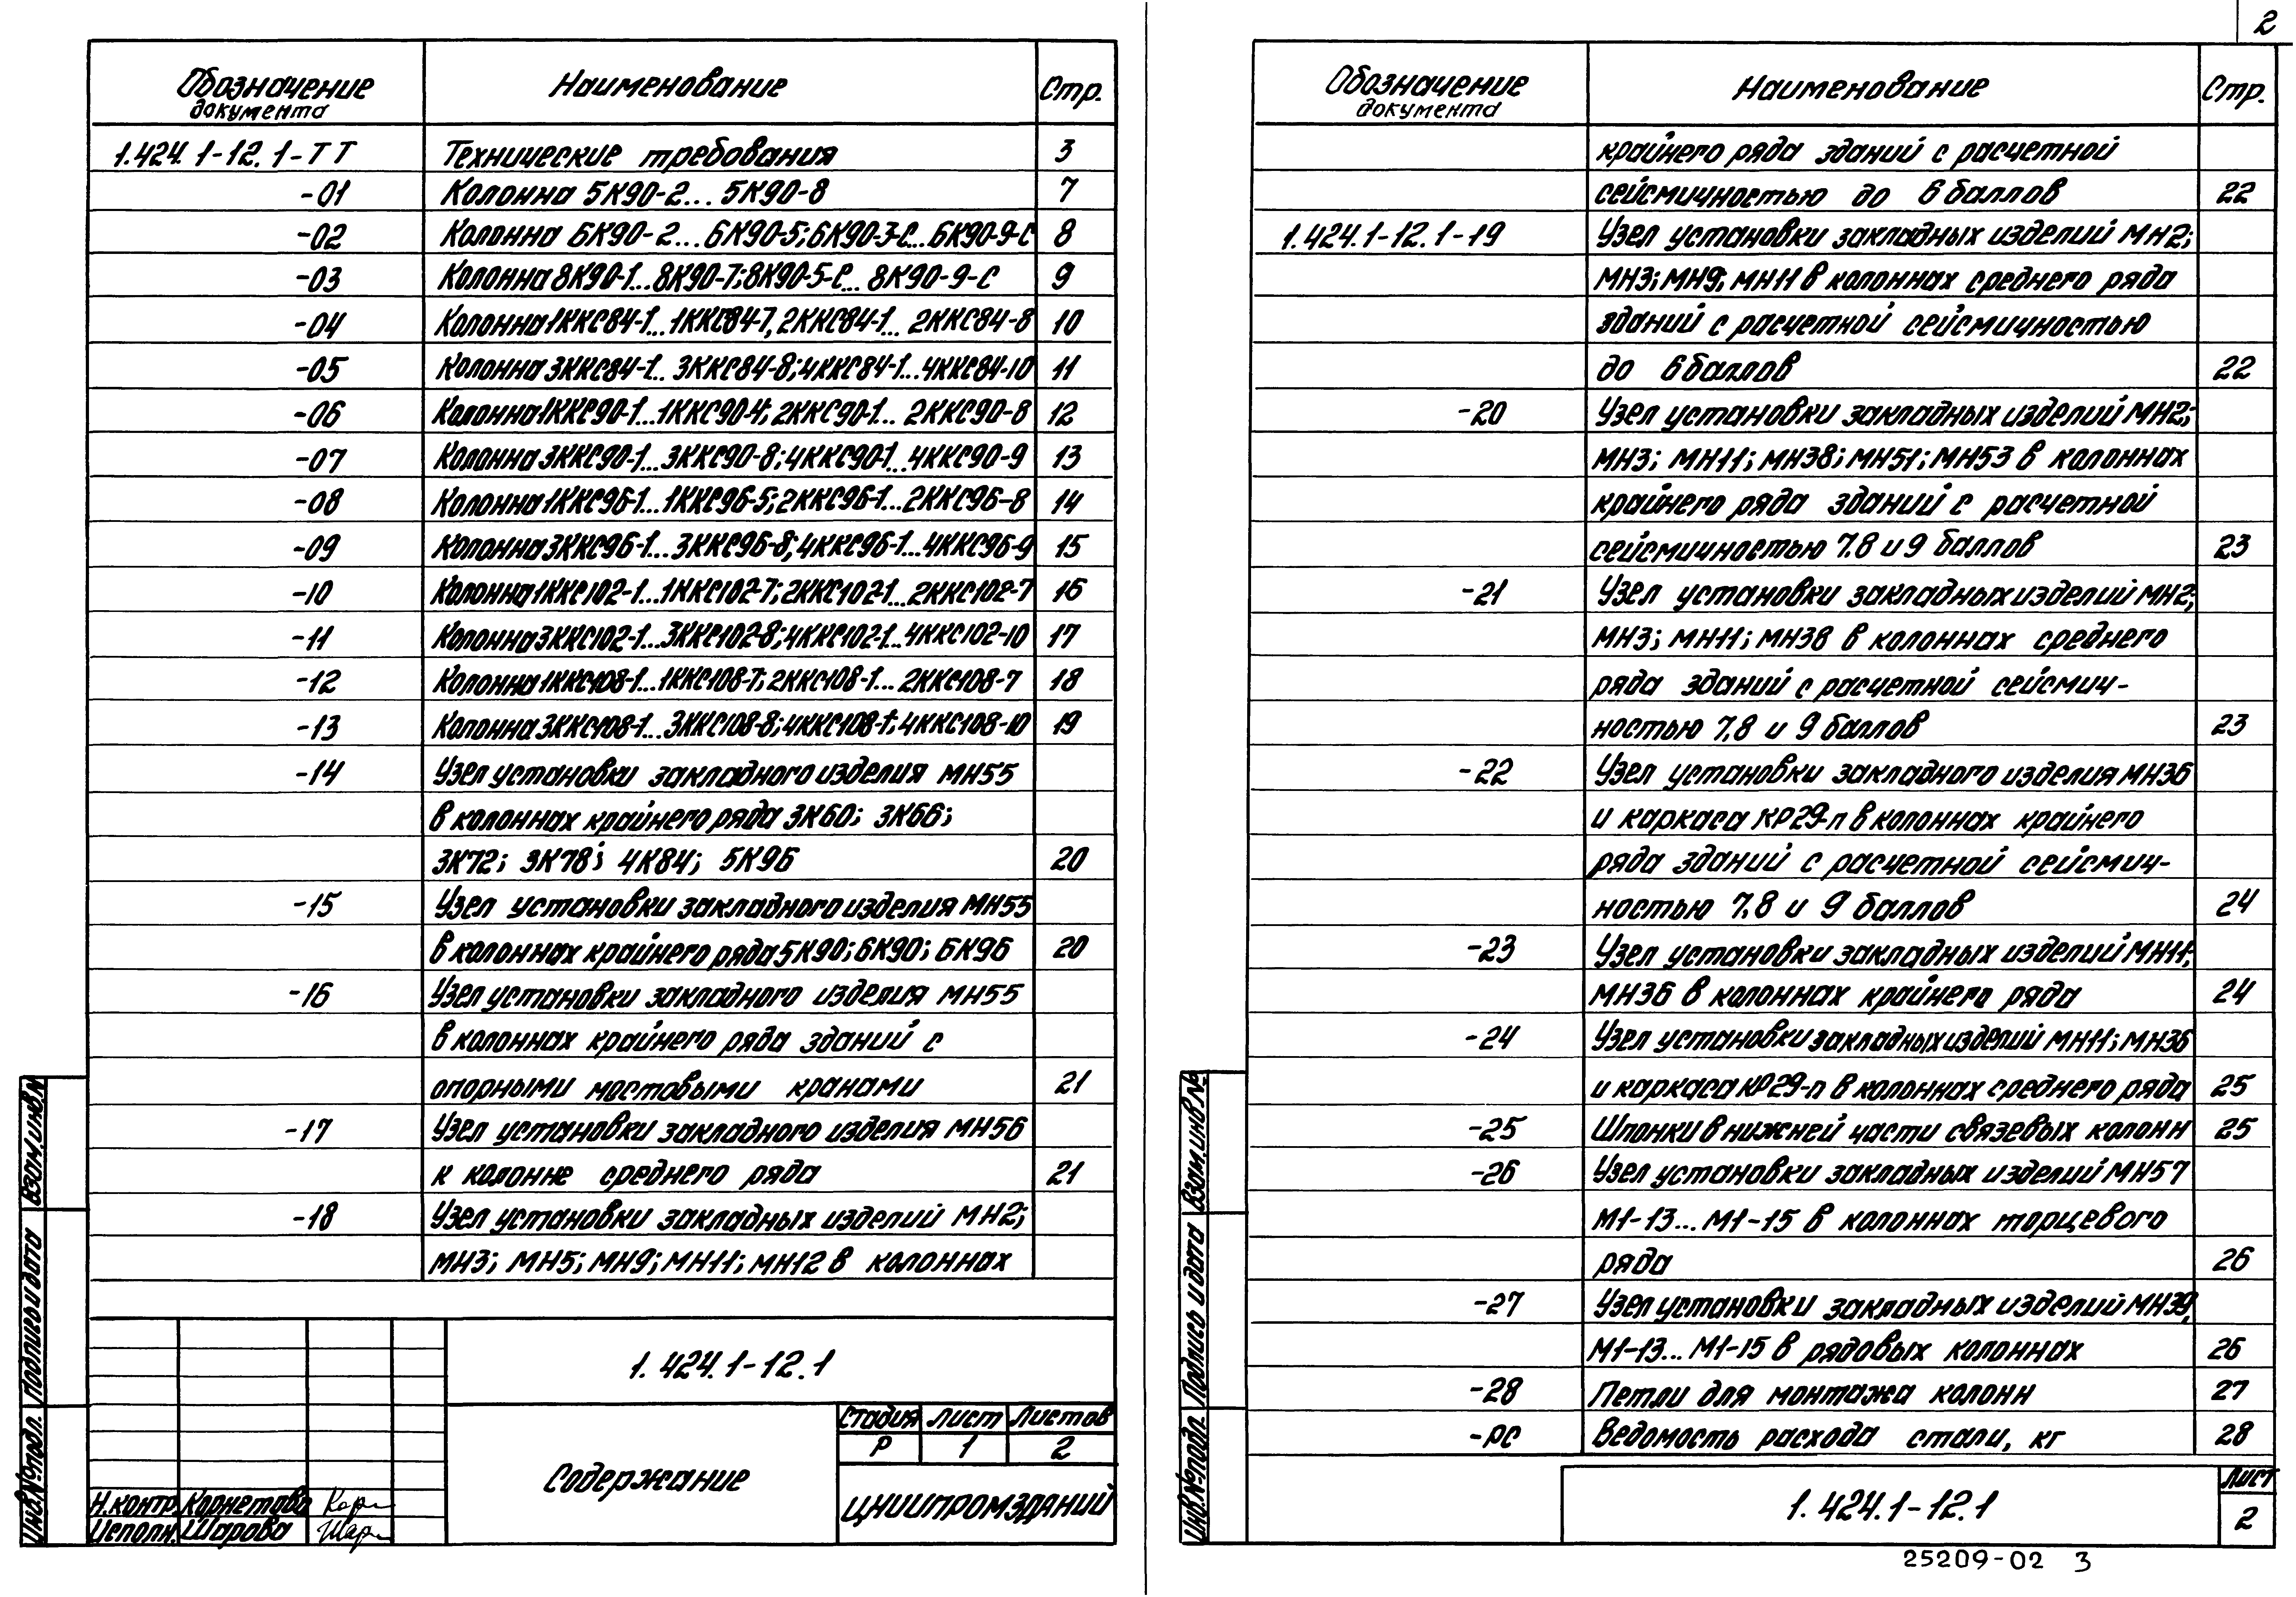 2
Обозначение документа Наименование Стр.
1.424.1-12.1-ТТ Технические требования 3
-01 Колонна 5К90-2... 5К90-8 7
-02 Колонна 6К90-2...6К90-5; 6К90-3-С...6К90-9-С 8
-03 Колонна 8К90-1...8К90-7; 8К90-5-С... 8К90-9-С 9
-04 Колонна 1ККС84-1...1ККС84-7, 2ККС84-1... 2ККС84-8 10
-05 Колонна 3ККС84-1... 3ККС84-8; 4ККС84-1...4ККС84-10 11
-06 Колонна 1ККС90-1...1ККС90-4; 2ККС90-1... 2ККС90-8 12
-07 Колонна 3ККС90-1...3ККС90-8; 4ККС90-1...4ККС90-9 13
-08 Колонна 1ККС96-1...1ККС96-5; 2ККС96-1...2ККС96-8 14
-09 Колонна 3ККС96-1...3ККС96-8; 4ККС96-1...4ККС96-9 15
-10 Колонна 1ККС102-1...1ККС102-7; 2ККС102-1...2ККС102-7 16
-11 Колонна 3ККС102-1...3ККС102-8; 4ККС102-1...4ККС102-10 17
-12 Колонна 1ККС108-1...1ККС108-7; 2ККС108-1...2ККС108-7 18
-13 Колонна 3ККС108-1...3ККС108-8; 4ККС108-1; 4ККС108-10 19
-14 Узел установки закладного изделия МН55
в колоннах крайнего ряда 3К60; 3К66;
3К72; 3К78; 4К84; 5К96 20
-15 Узел установки закладного изделия МН55
в колоннах крайнего ряда 5К90; 6К90; 6К96 20
-16 Узел установки закладного изделия МН55
в колоннах крайнего ряда зданий с
опорными мостовыми кранами 21
-17 Узел установки закладного изделия МН56
к колонне среднего ряда 21
-18 Узел установки закладных изделий МН2;
МН3; МН5; МН9; МН11; МН12 в колоннах
1.424.1-12.1
Содержание
Стадия Лист Листов
Р 1 2
ЦНИИПРОМЗДАНИЙ
Н.контр. Корнетова
Исполн. Шарова
Инв.№подл. Подпись и дата Взам.инв.№
Обозначение документа Наименование Стр.
крайнего ряда зданий с расчетной
сейсмичностью до 6 баллов 22
1.424.1-12.1-19 Узел установки закладных изделий МН2;
МН3; МН9; МН11 в колоннах среднего ряда
зданий с расчетной сейсмичностью
до 6 баллов 22
-20 Узел установки закладных изделий МН2;
МН3; МН11; МН38; МН51; МН53 в колоннах
крайнего ряда зданий с расчетной
сейсмичностью 7.8 и 9 баллов 23
-21 Узел установки закладных изделий МН2;
МН3; МН11; МН38 в колоннах среднего
ряда зданий с расчетной сейсмич-
ностью 7,8 и 9 баллов 23
-22 Узел установки закладного изделия МН36
и каркаса КР29-п в колоннах крайнего
ряда зданий с расчетной сейсмич-
ностью 7,8 и 9 баллов 24
-23 Узел установки закладных изделий МН11;
МН36 в колоннах крайнего ряда 24
-24 Узел установки закладных изделий МН11; МН36
и каркаса КР29-п в колоннах среднего ряда 25
-25 Шпонки в нижней части связевых колонн 25
-26 Узел установки закладных изделий МН57
М1-13... М1-15 в колоннах торцевого
ряда 26
-27 Узел установки закладных изделий МН39,
М1-13... М1-15 в рядовых колоннах 26
-28 Петли для монтажа колонн 27
-РС Ведомость расхода стали, кг 28
1.424.1-12.1
Лист
2
Инв.№подл. Подпись и дата Взам.инв№
25209-02 3